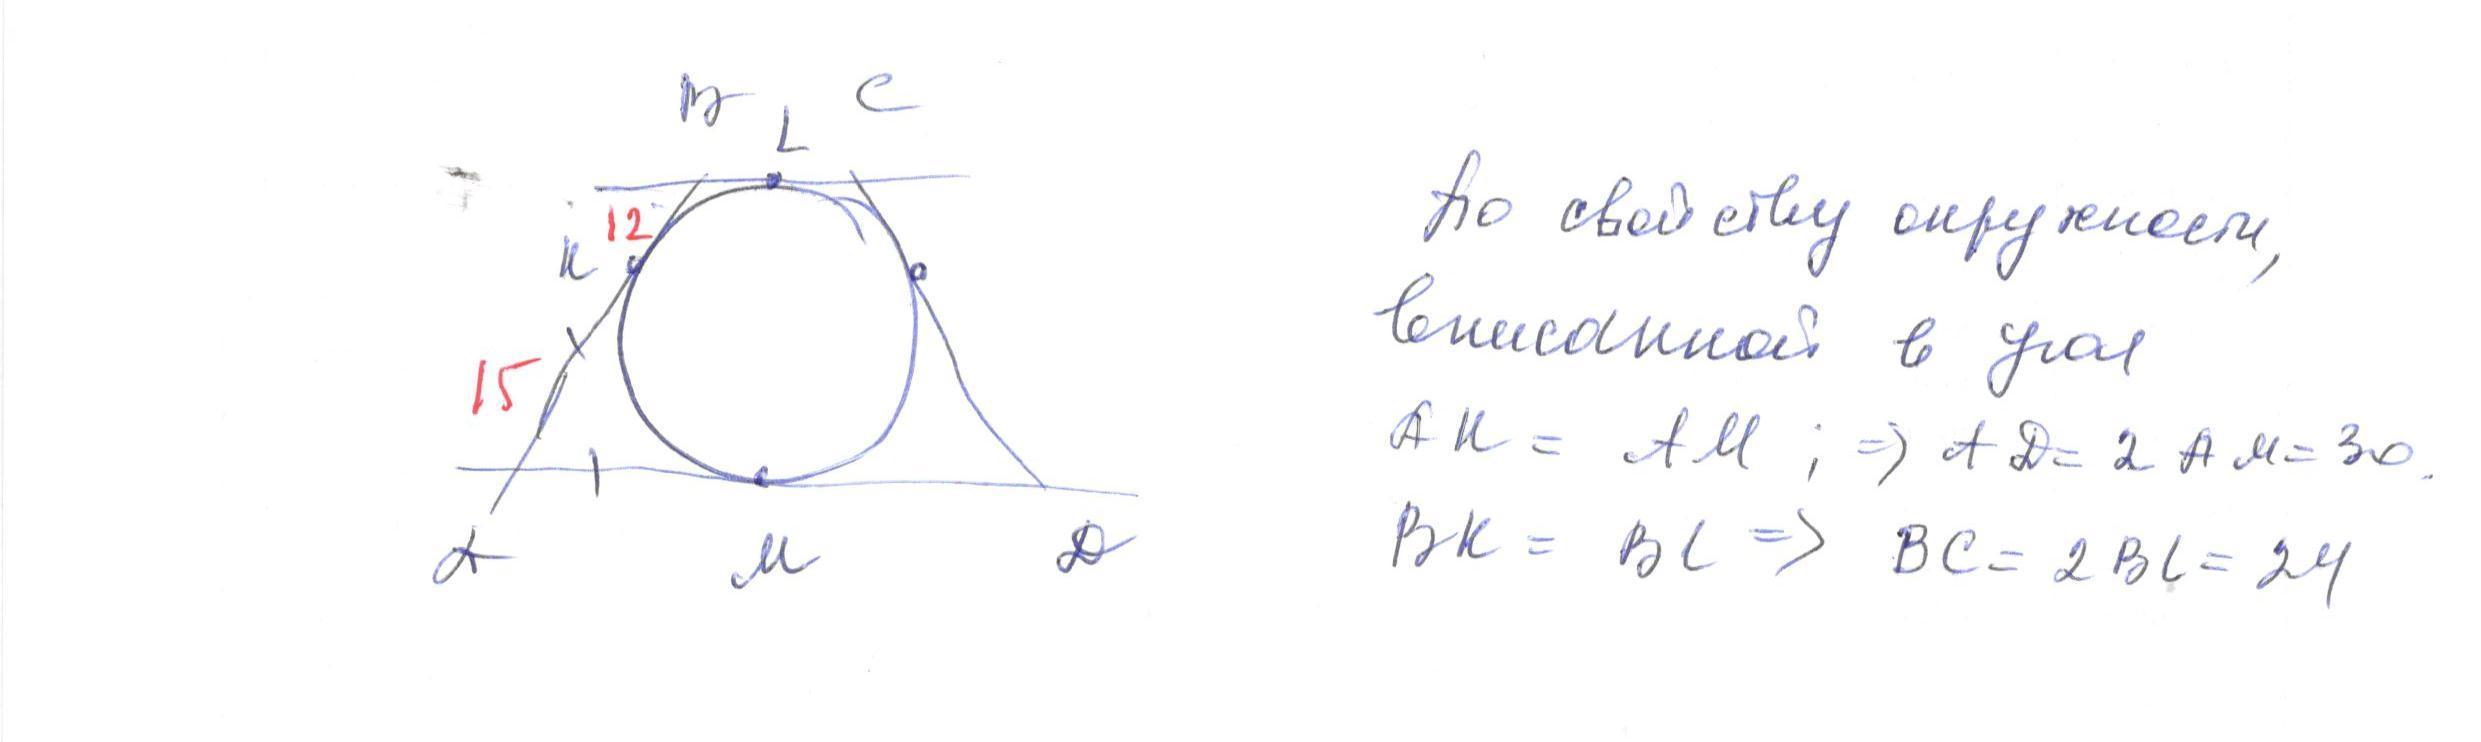 B L C
12
K
15
A M D
По свойству окружности,
вписанной в угол
AK = AM ; => AD = 2 AM = 30.
BK = BL => BC = 2BL = 24